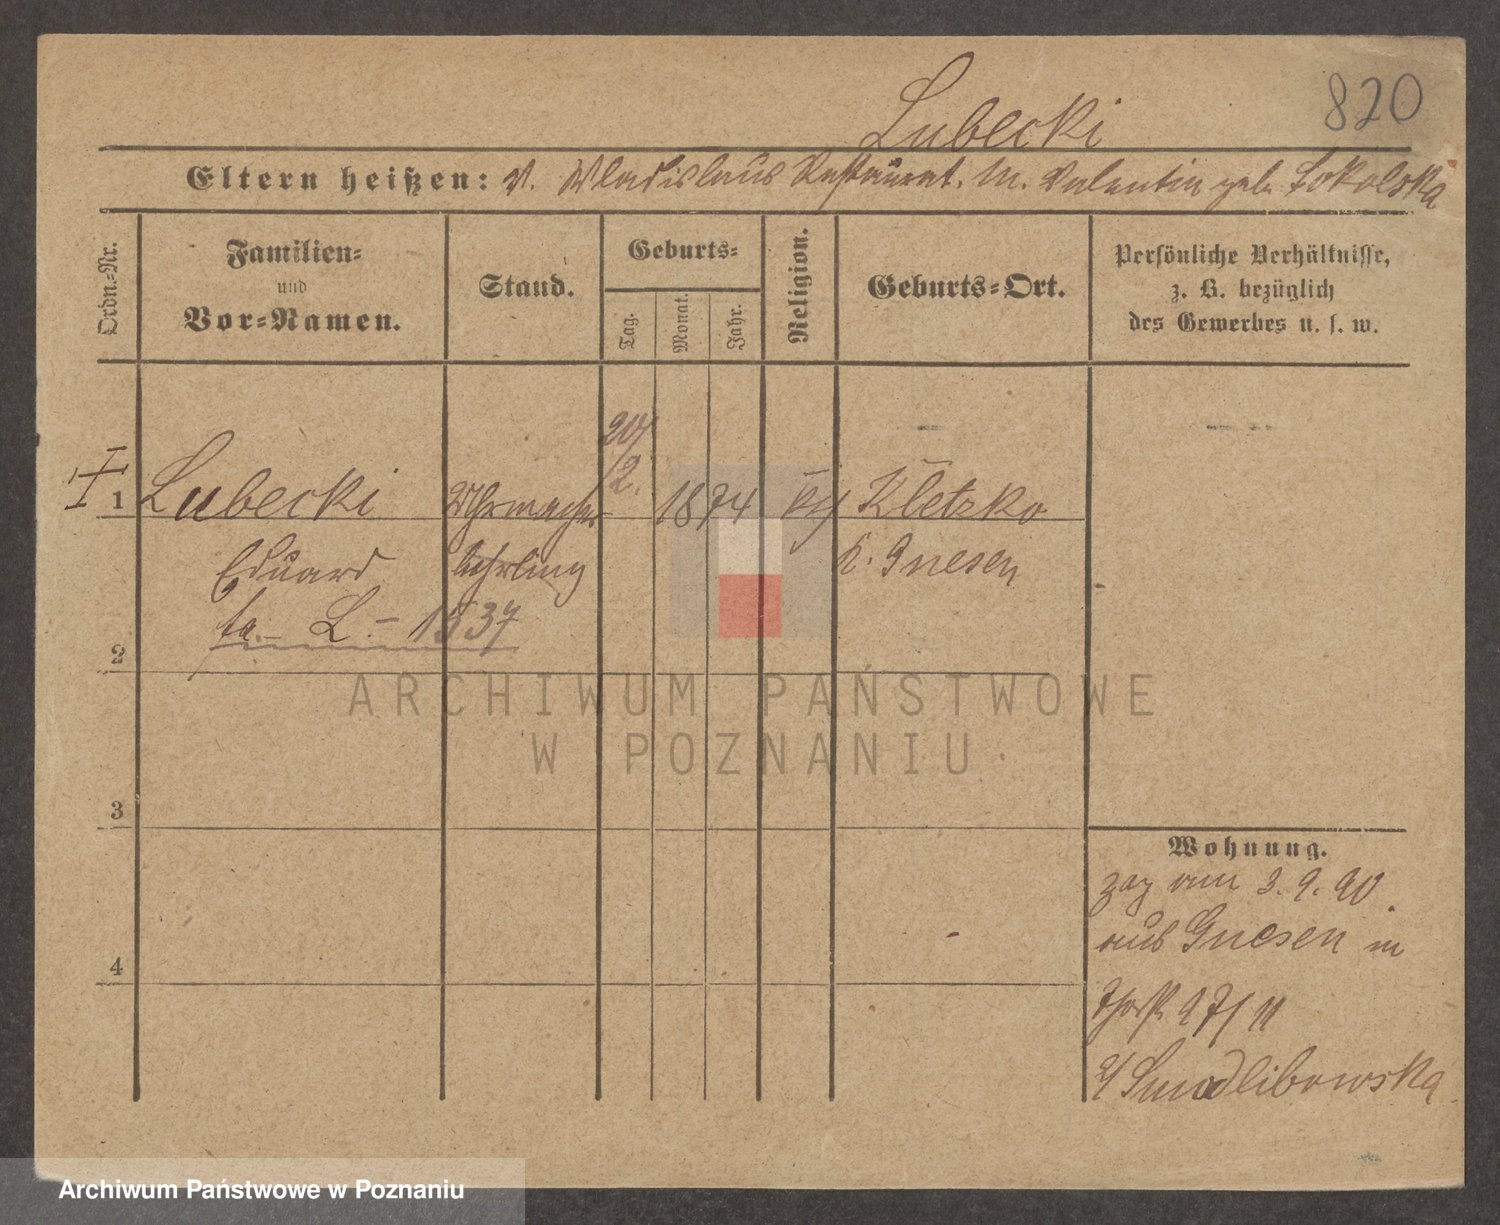 Lubecki
820
Eltern heißen: V. Wladislaus Restaurat. M. Valentin geb. Sokolska
Ordn.-Nr.
Familien-
und
Vor-Namen.
Stand.
Geburts-
Tag.
Monat.
Jahr.
Religion.
Geburts-Ort.
Persönliche Verhältnisse,
z. B. bezüglich
des Gewerbes u. s. w.
20/
12.
1 Lubecki Uhrmacher 1874 Kletzko
Eduard lehrling k. Gnesen
L. - 1537
2
ARCHIWUM PAŃSTWOWE
W POZNANIU
3
Wohnung.
zog am 3.9.90.
aus Gnesen in
4
Thorst. 17/11
b/ Smodlibowska
Archiwum Państwowe w Poznaniu